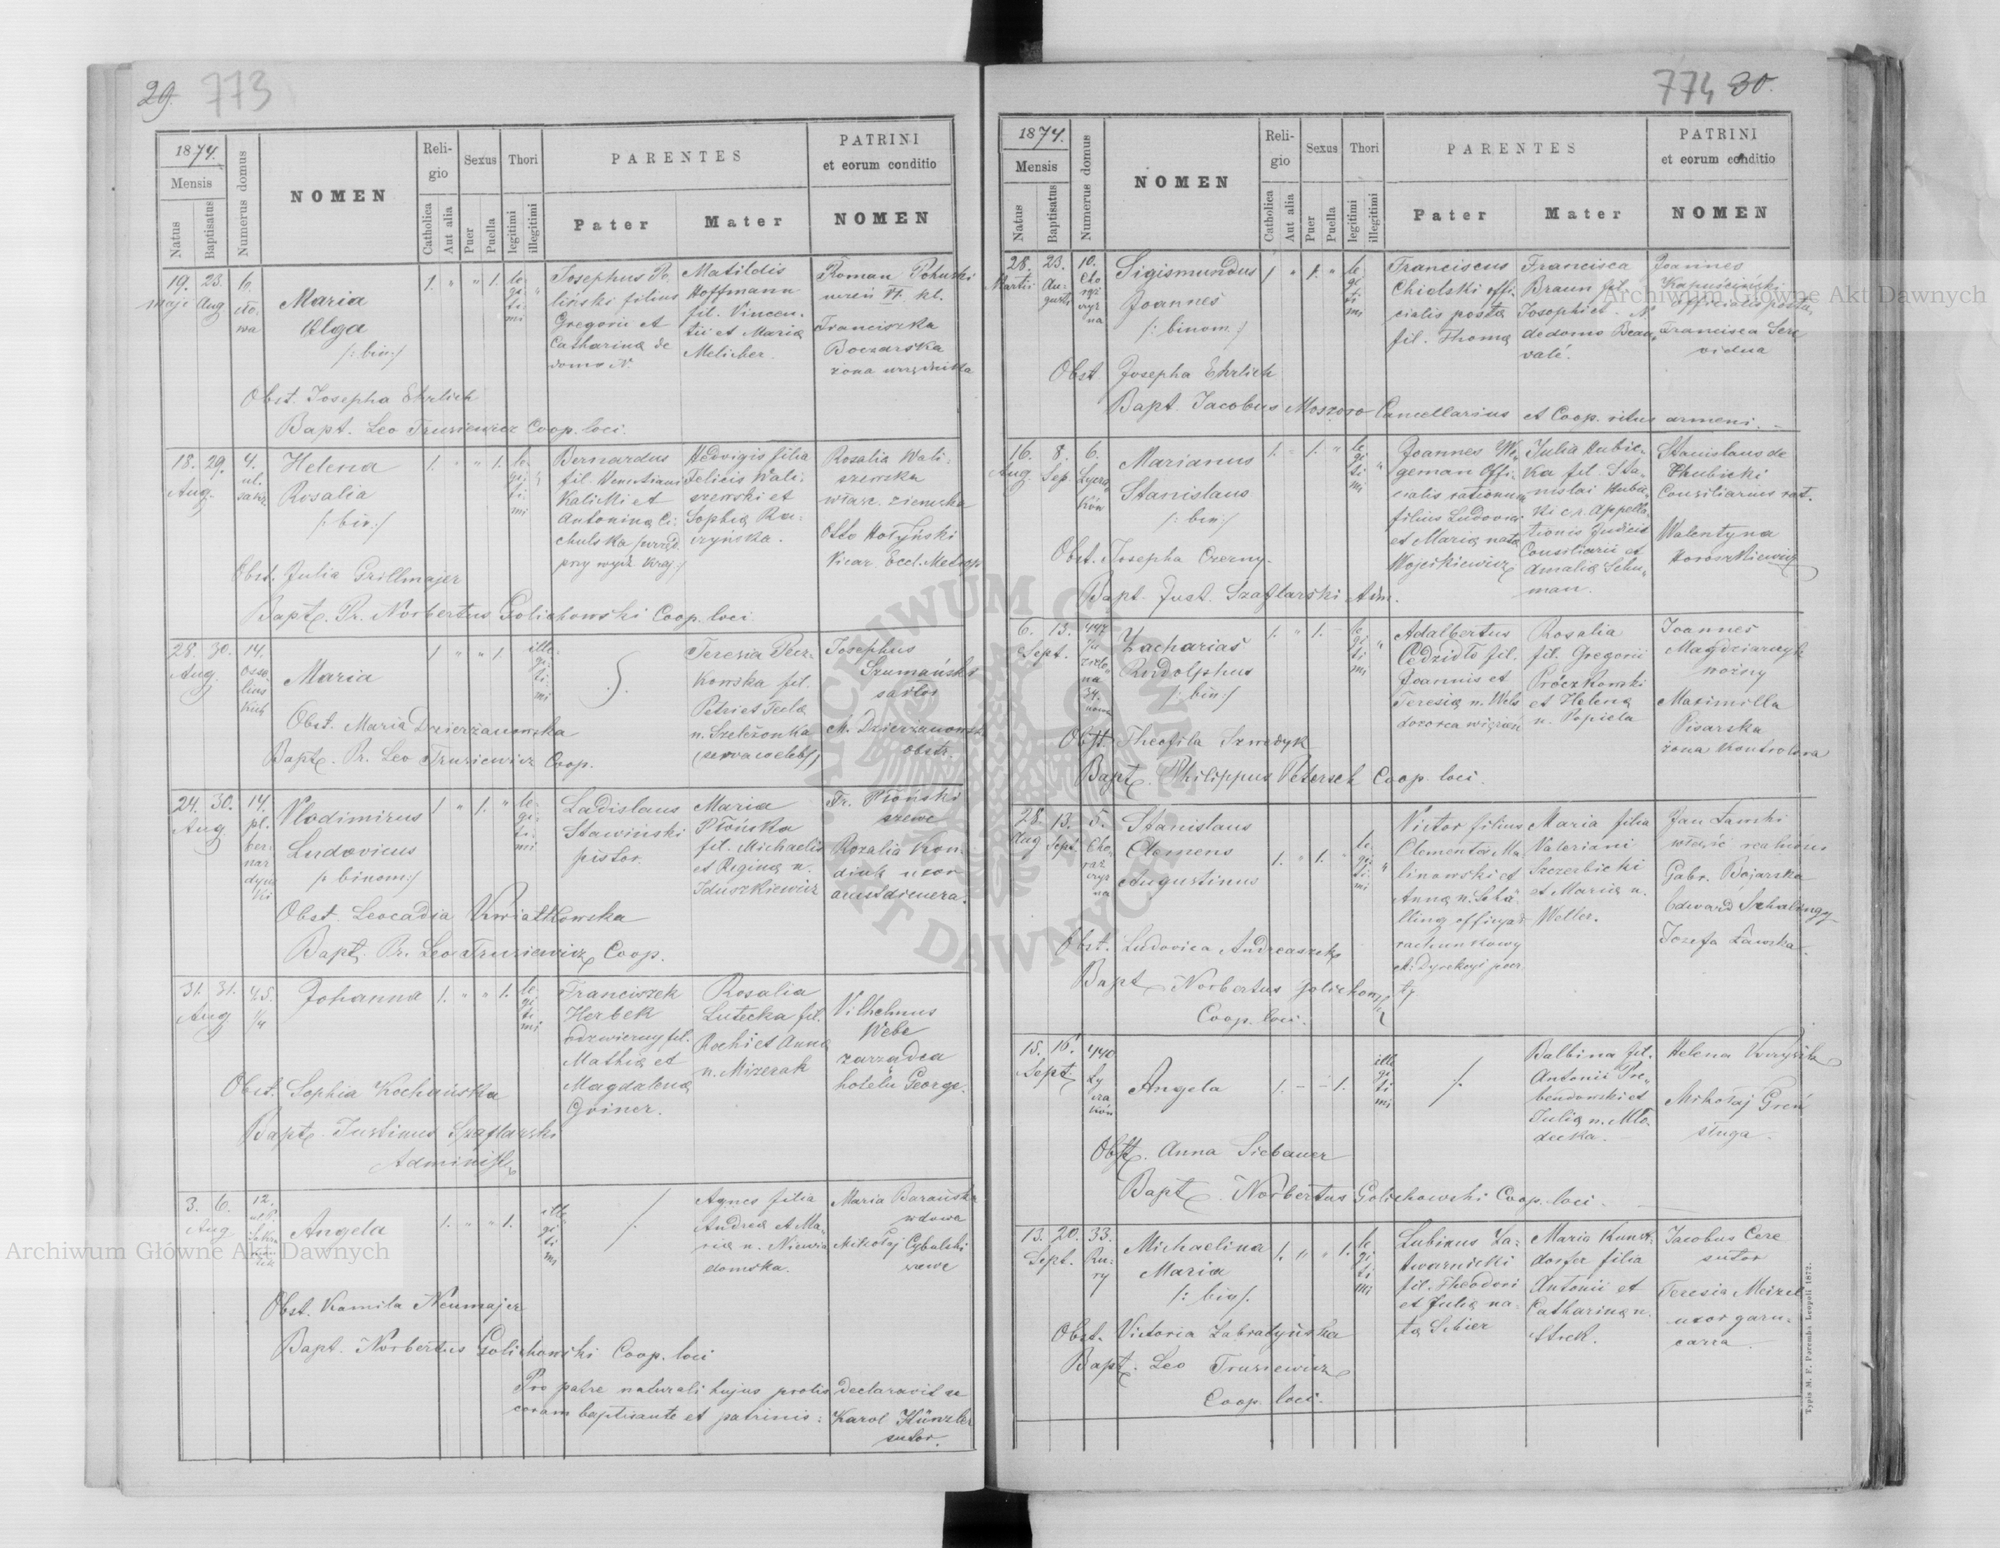 29. 773
1874.
Mensis
Natus
Baptisatus
Numerus domus
NOMEN
Religio
Catholica
Aut alia
Sexus
Puer
Puella
Thori
legitimi
illegitimi
PARENTES
Pater
Mater
PATRINI
et eorum conditio
NOMEN
19. 23. 6.
Maji Aug
Maria
Olga
/: bin:/
1. " " 1.
le-
gi-
ti-
mi
Josephus
filius
Gregorii et
Catharinæ de
domo N.
Matildis
Hoffmann
fil. Vincen-
tii et Mariæ
Melicher.
Roman
uczeń VI. kl.
Franciszka
Boczarska
żona urzędnika
Obst. Josepha Ehrlich
Bapt. Leo Truriewicz Coop. loci.
18. 29. 4.
Aug.
Helena
Rosalia
/: bin:/
1. " " 1.
le-
gi-
ti-
mi
Bernardus
fil.
Kaliski et
Antoninæ Ci-
chulska
Hedvigis filia
Felicis Wali-
szewski et
Sophiæ Ra-
czyńska.
Rosalia Wali-
szewska
właśc. ziemska
Otto Hołyński
Vicar. Eccl. Metrop
Obst. Julia Grillmajer
Bapt. Pr. Norbertus Golichowski Coop. loci.
28. 30. 14.
Aug.
Maria
1 " " 1
ille-
gi-
ti-
mi
Teresia
kowska fil.
Petri et Teclæ
n. Szeleżonka
Josephus
Szumański
sartor
M. Dzierżanowska
obstr.
Obst. Maria Dzierżanowska
Bapt. Pr. Leo Truriewicz Coop.
24. 30. 14.
Aug
pl.
ber-
nar
dyń
ski
Vlodimirus
Ludovicus
/: binom:/
1 " 1. "
le-
gi-
ti-
mi
Ladislaus
Stawiński
pistor.
Maria
Płońska
fil. Michaelis
et Reginæ n.
Iduszkiewicz
Fr. Płoński
szewc
Rozalia Kon-
diuk uxor
Obst. Leocadia Kwiatkowska
Bapt. Pr. Leo Truriewicz Coop.
31. 31. 45.
Aug 1/4
Johanna
1. " " 1.
le-
gi-
ti-
mi
Franciszek
Herbek
odzwierny fil.
Mathiæ et
Magdalenæ
Griner.
Rosalia
Lutecka fil.
Rochi et Annæ
n. Mizerak
Vilhelmus
Webe
zarządca
hotelu George.
Obst. Sophia Kochańska
Bapt. Justinus Szaflarski
Administr.
3. 6. 12.
Aug
Angela
1. " " 1.
ille-
gi-
ti-
mi
Agnes filia
Andreæ et Ma-
riæ n. Niewia
domska.
Maria Barańska
wdowa
Mikołaj Cybulski
Obst. Kamila Neumajer
Bapt. Norbertus Golichowski Coop. loci
Pro patre naturali hujus prolis declaravit se
coram baptisante et patrinis: Karol Künzler
sutor.
774 30.
1874.
Mensis
Natus
Baptisatus
Numerus domus
NOMEN
Religio
Catholica
Aut alia
Sexus
Puer
Puella
Thori
legitimi
illegitimi
PARENTES
Pater
Mater
PATRINI
et eorum conditio
NOMEN
28. 23. 10.
Martii Au-
gusti
Sigismundus
Joannes
/: binom:/
1 " 1. "
le-
gi-
ti-
mi
Franciscus
Chielski offi-
cialis postæ
fil. Thomæ
Francisca
Braun fil.
Josephi et N
de domo Beau-
valé.
Joannes
Kapuściński
officialis postæ
Francisca Sere
vidua
Obst Josepha Ehrlich
Bapt. Jacobus Moszoro Cancellarius et Coop. ritus armeni.
16. 8. 6.
Aug. Sep.
Marianus
Stanislaus
/: bin:/
1. " 1. "
le-
gi-
ti-
mi
Joannes Wi-
geman Offi-
cialis rationum
filius Ludovici
et Mariæ nata
Wojcikiewicz
Julia Hubic-
ka fil. Sta-
nislai Hubic-
ki c. r. Appella-
tionis Judicii
Consiliarii et
Amaliæ Schu-
man.
Stanislaus de
Hubicki
Consiliarius
Walentyna
Obst. Josepha Czerny.
Bapt. Just. Szaflarski Adm.
6. 13. 447
Sept.
34.
nowa
Zacharias
Rudolphus
/: bin:/
1. " 1. –
le-
gi-
ti-
mi
Adalbertus
Cedzidło fil.
Joannis et
Teresiæ n. Wels
dozorca więzień
Rosalia
fil. Gregorii
Próczkowski
et Helenæ
n. Popiela
Joannes
Magdziarczyk
woźny
Maximilla
Pisarska
żona kontrolora
Obst. Theofila Szwedyk
Bapt. Philippus Petersch Coop. loci.
28. 13. 5.
Aug Sept.
Stanislaus
Clemens
Augustinus
1. " 1. "
le-
gi-
ti-
mi
Victor filius
Clementis Ma-
linowski et
Annæ n. Schä-
lling officyał
rachunkowy
c. k. Dyrekcyi pocz
ty.
Maria filia
Valeriani
Szczerbicki
et Mariæ n.
Weller.
Jan Lamski
właść realności
Gabr. Bojarska
Edward
Józefa Lawska
Obst. Ludovica Andreaszek
Bapt Norbertus Golichowski
Coop. loci.
15. 16. 440
Sept.
Ły
cza
ków
Angela
1. – – 1.
ille-
gi-
ti-
mi
Balbina fil.
Antonii Tre-
bendowski et
Juliæ n. Mło-
decka.
Helena
Mikołaj Greń
sługa.
Obst. Anna Siebauer
Bapt. Norbertus Golichowski Coop. loci.
13. 20. 33.
Sept.
Ru-
ry
Michaelina
Maria
/: bin/.
1. " " 1.
le-
gi-
ti-
mi
Lubinus La-
twarnicki
fil. Theodori
et Juliæ na-
ta Sibier
Maria Kunst-
dorfer filia
Antonii et
Catharinæ n.
Stek.
Jacobus Cere
sutor
Teresia Meizel
uxor garn-
carza.
Obst. Victoria Zabratyńska
Bapt. Leo Truriewicz
Coop. loci.
Typis M. F. Poremba Leopoli 1872.
Archiwum Główne Akt Dawnych
Archiwum Główne Akt Dawnych
ARCHIWUM GŁÓWNE AKT DAWNYCH